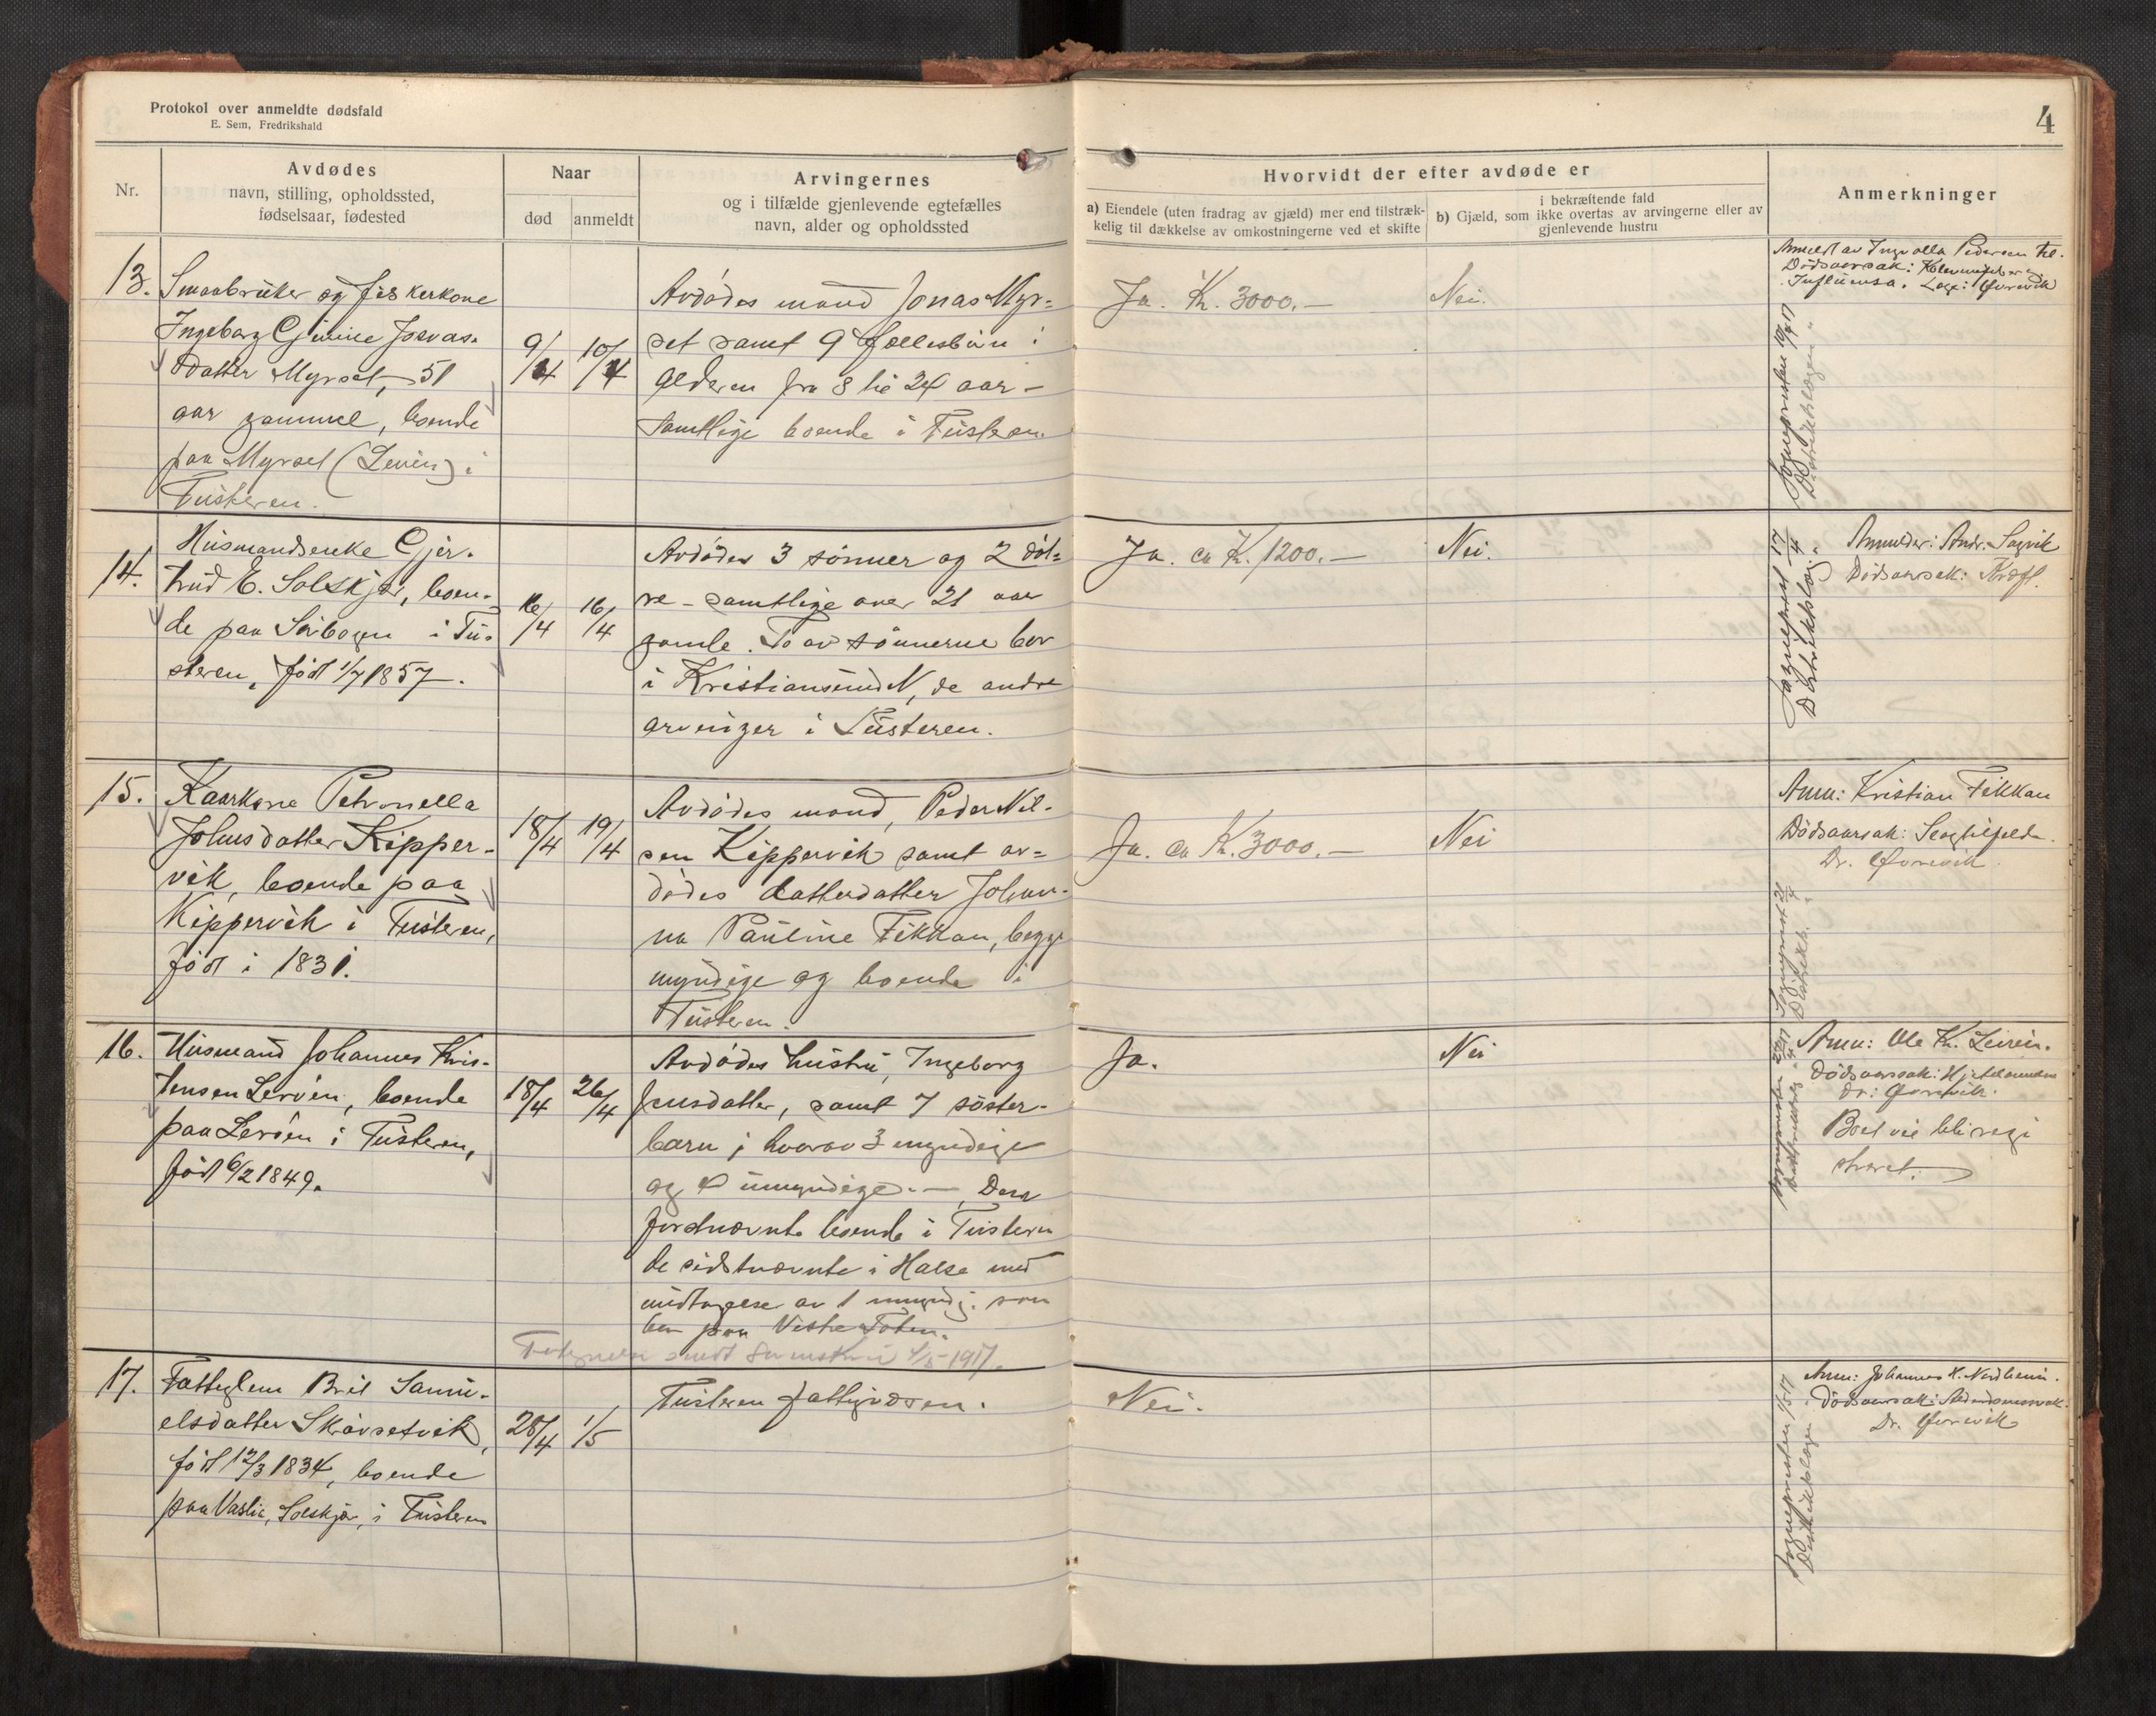 Protokol over anmeldte dødsfald
E. Sem, Fredrikshald
4
Nr.
Avdødes
navn, stilling, opholdssted,
fødselsaar, fødested
Naar
død
anmeldt
Arvingernes
og i tilfælde gjenlevende egtefælles
navn, alder og opholdssted
Hvorvidt der efter avdøde er
a) Eiendele (uten fradrag av gjæld) mer end tilstræk-
kelig til dækkelse av omkostningerne ved et skifte
i bekræftende fald
b) Gjæld, som ikke overtas av arvingerne eller av
gjenlevende hustru
Anmerkninger
13.
Smaabruker og fiskerkone
Ingeborg
datter Myrset, 51
aar gammel, boende
paa Myrset (Leruin) i
Tusteren.
9/4
10/4
Avdødes mand Jonas Myr=
set samt 9 fællesbarn i
alderen fra 8 til 24 aar –
samtlige boende i Tusteren.
Ja. Kr. 3000.–
Nei.
Anmeldt av Ingvalla Pedersen
Dødsaarsak:
Influensa. Læge: Qvervik
Sognepresten 10/4 17
Distriktslægen "
14.
Husmandsenke Gjer-
trud E. Solskjør, boen-
de paa Sørbogen i Tu-
steren, født 1/7 1857.
16/4
16/4
Avdødes 3 sønner og 2 døt=
re – samtlige over 21 aar
gamle. To av sønnerne bor
i Kristiansund N, de andre
arvinger i Tusteren.
Ja. ca Kr. 1200.–
Nei.
Anmelder: Andr. Sagvik
Dødsaarsak: Kræft.
Sogneprest 17/4
Distriktslæg. "
15.
Kaarkone Petronella
Johnsdatter Kipper-
vik, boende paa
Kippervik i Tusteren,
født i 1831.
18/4
19/4
Avdødes mand, Peder Nil-
sen Kippervik samt av=
dødes datterdatter Johan-
na Pauline Fikkan, begge
myndige og boende i
Tusteren.
Ja. ca Kr. 3000.–
Nei
Anm: Kristian Fikkan
Dødsaarsak:
Dr. Qvervik.
Sogneprest 21/4
Distrikt. "
16.
Husmand Johannes Kris-
tensen Lervên, boende
paa Lervên i Tusteren,
født 6/2 1849.
18/4
26/4
Avdødes hustru, Ingeborg
Jensdatter, samt 7 søster-
barn, hvorav 3 myndige
og 4 umyndige. –
førstnævnte boende i Tusteren
de sidstnævnte i Halse med
undtagelse av 1 myndig som
bor paa Vestre Toten.
4/5-1917.
Ja.
Nei
Anm: Ole Kr.
Dødsaarsak:
Dr: Qvervik.
Boet vil bli regi
streret.
17.
Fatteglem Brit Samu-
elsdatter Skarsetvik,
født 12/3 1834, boende
paa Vaslia, Solskjør, i Tusteren
28/4
1/5
Tusteren fattigvæsen.
Nei.
Anm: Johannes K. Nordheim.
Dødsaarsak: Alderdomssvak.
Dr. Qvervik
Sognepresten 1/5 17
Distriktslægen "